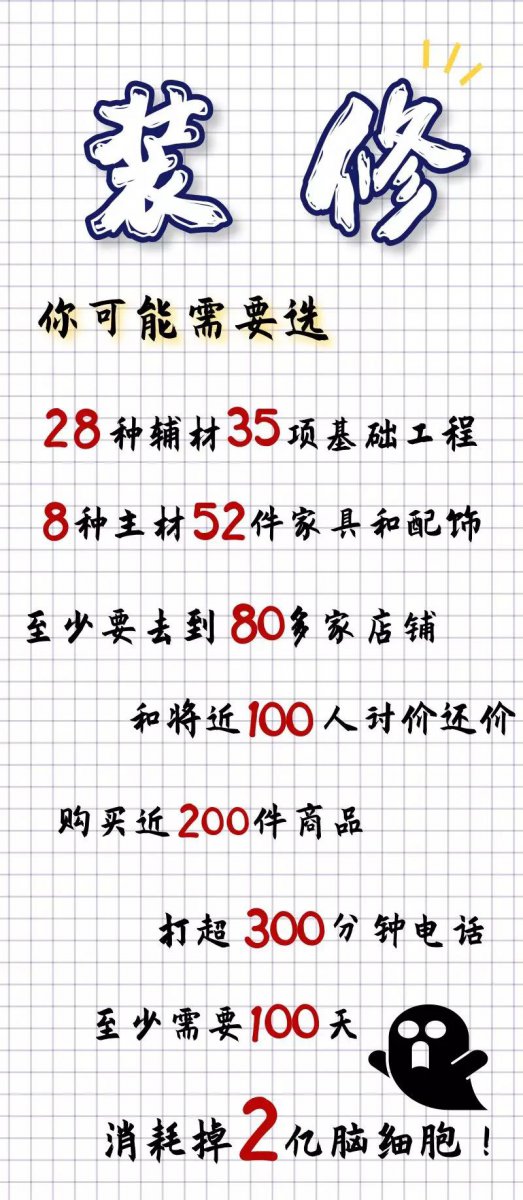 装修
你可能需要选
28种辅材35项基础工程
8种主材52件家具和配饰
至少要去到80多家店铺
和将近100人讨价还价
购买近200件商品
打超300分钟电话
至少需要100天
消耗掉2亿脑细胞！